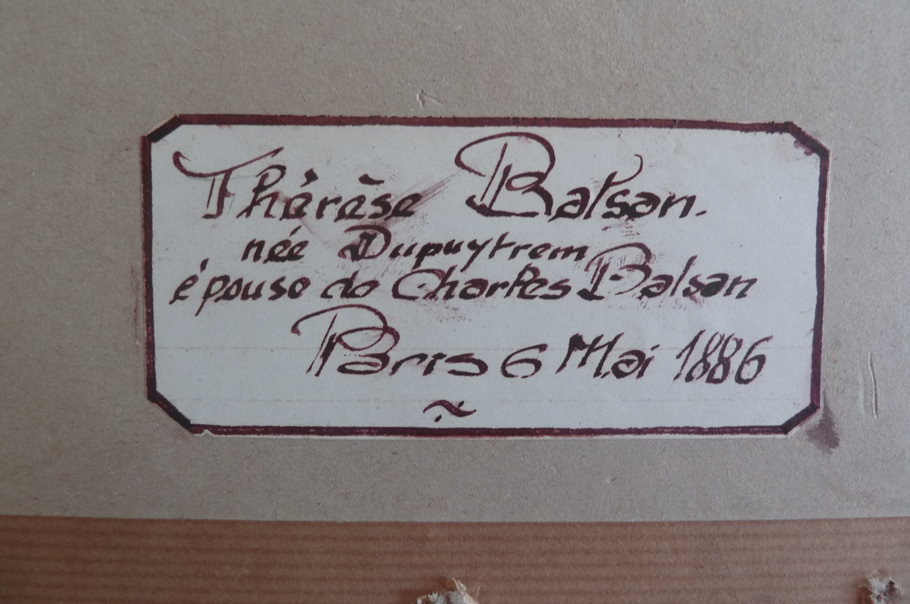 Thérèse Balsan.
née Dupuytrem
épouse de Charles Balsan
Paris 6 Mai 1886